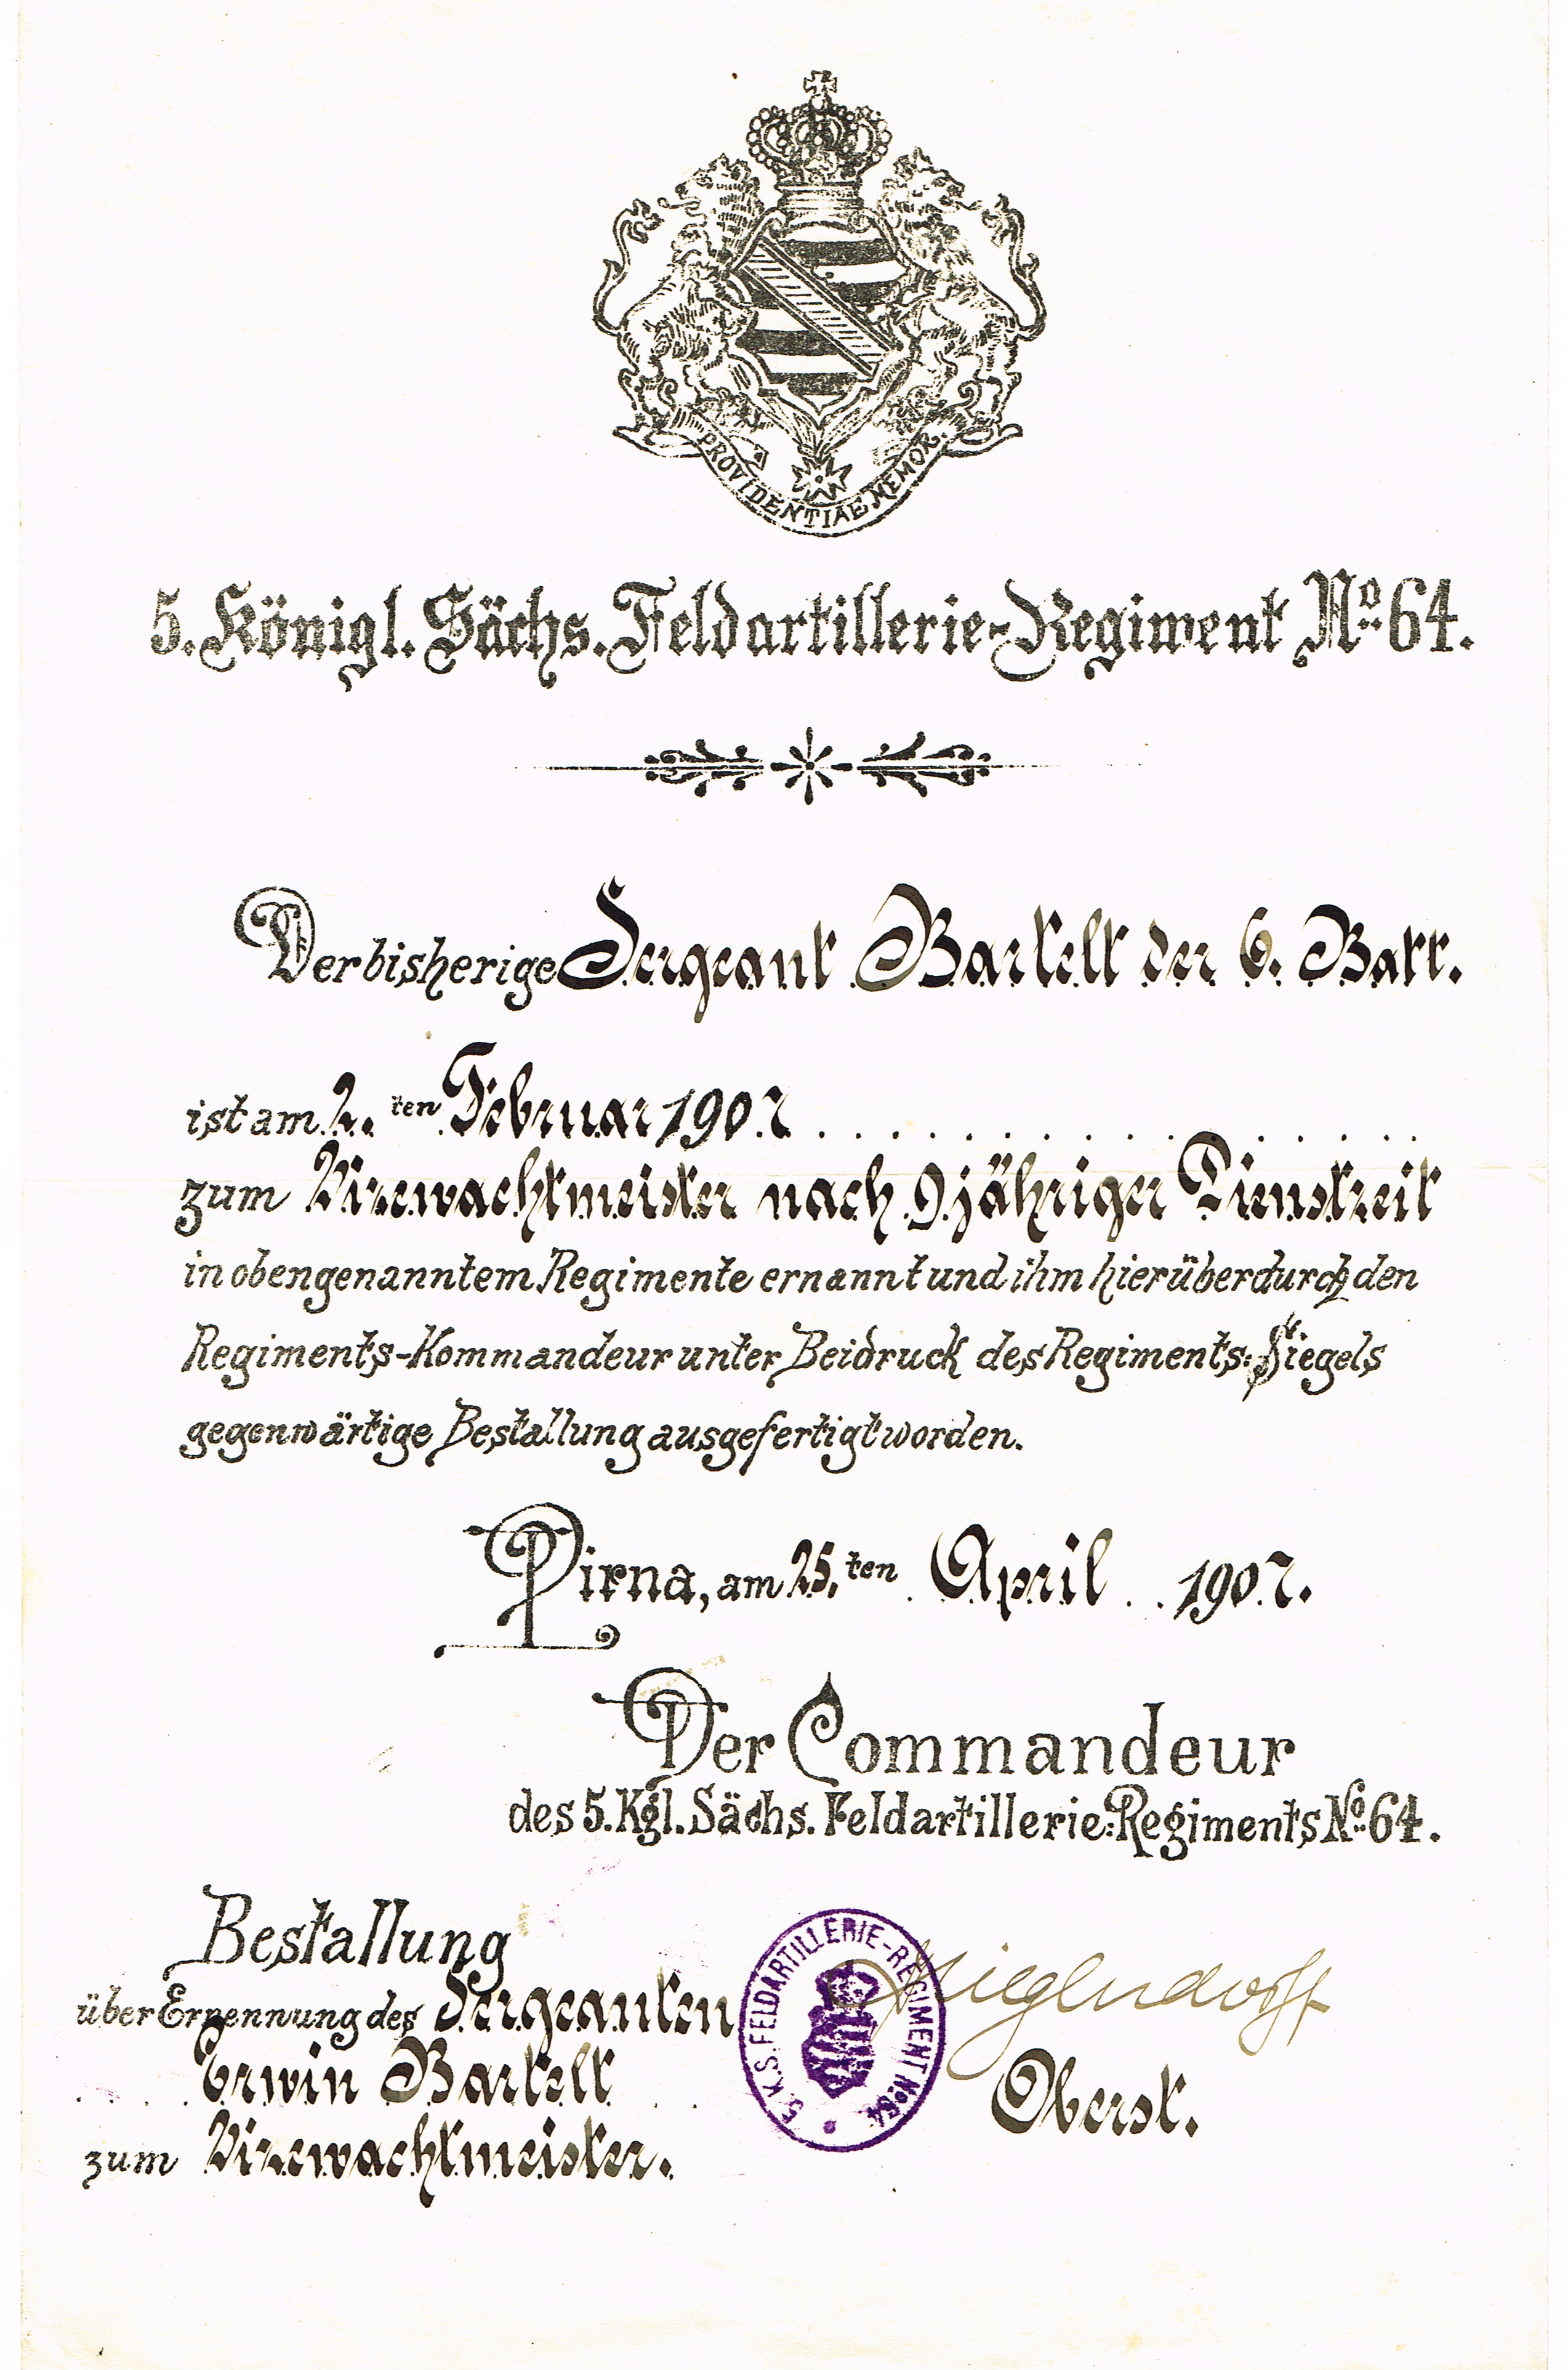 PROVIDENTIAE MEMOR.
5. Königl. Sächs. Feldartillerie-Regiment No. 64.
Der bisherige Sergeant Bartelt der 6. Batt.
ist am 2. ten Februar 1907
zum Vizewachtmeister nach 9 jähriger Dienstzeit
in obengenanntem Regimente ernannt und ihm hierüber durch den
Regiments-Kommandeur unter Beidruck des Regiments: Siegels
gegenwärtige Bestallung ausgefertigt worden.
Pirna, am 25. ten April 1907.
Der Commandeur
des 5. Kgl. Sächs. Feldartillerie: Regiments No. 64.
Bestallung
über Ernennung des Sergeanten
Erwin Bartelt
zum Vizewachtmeister.
5. K. S. FELDARTILLERIE-REGIMENT No. 64
Oberst.